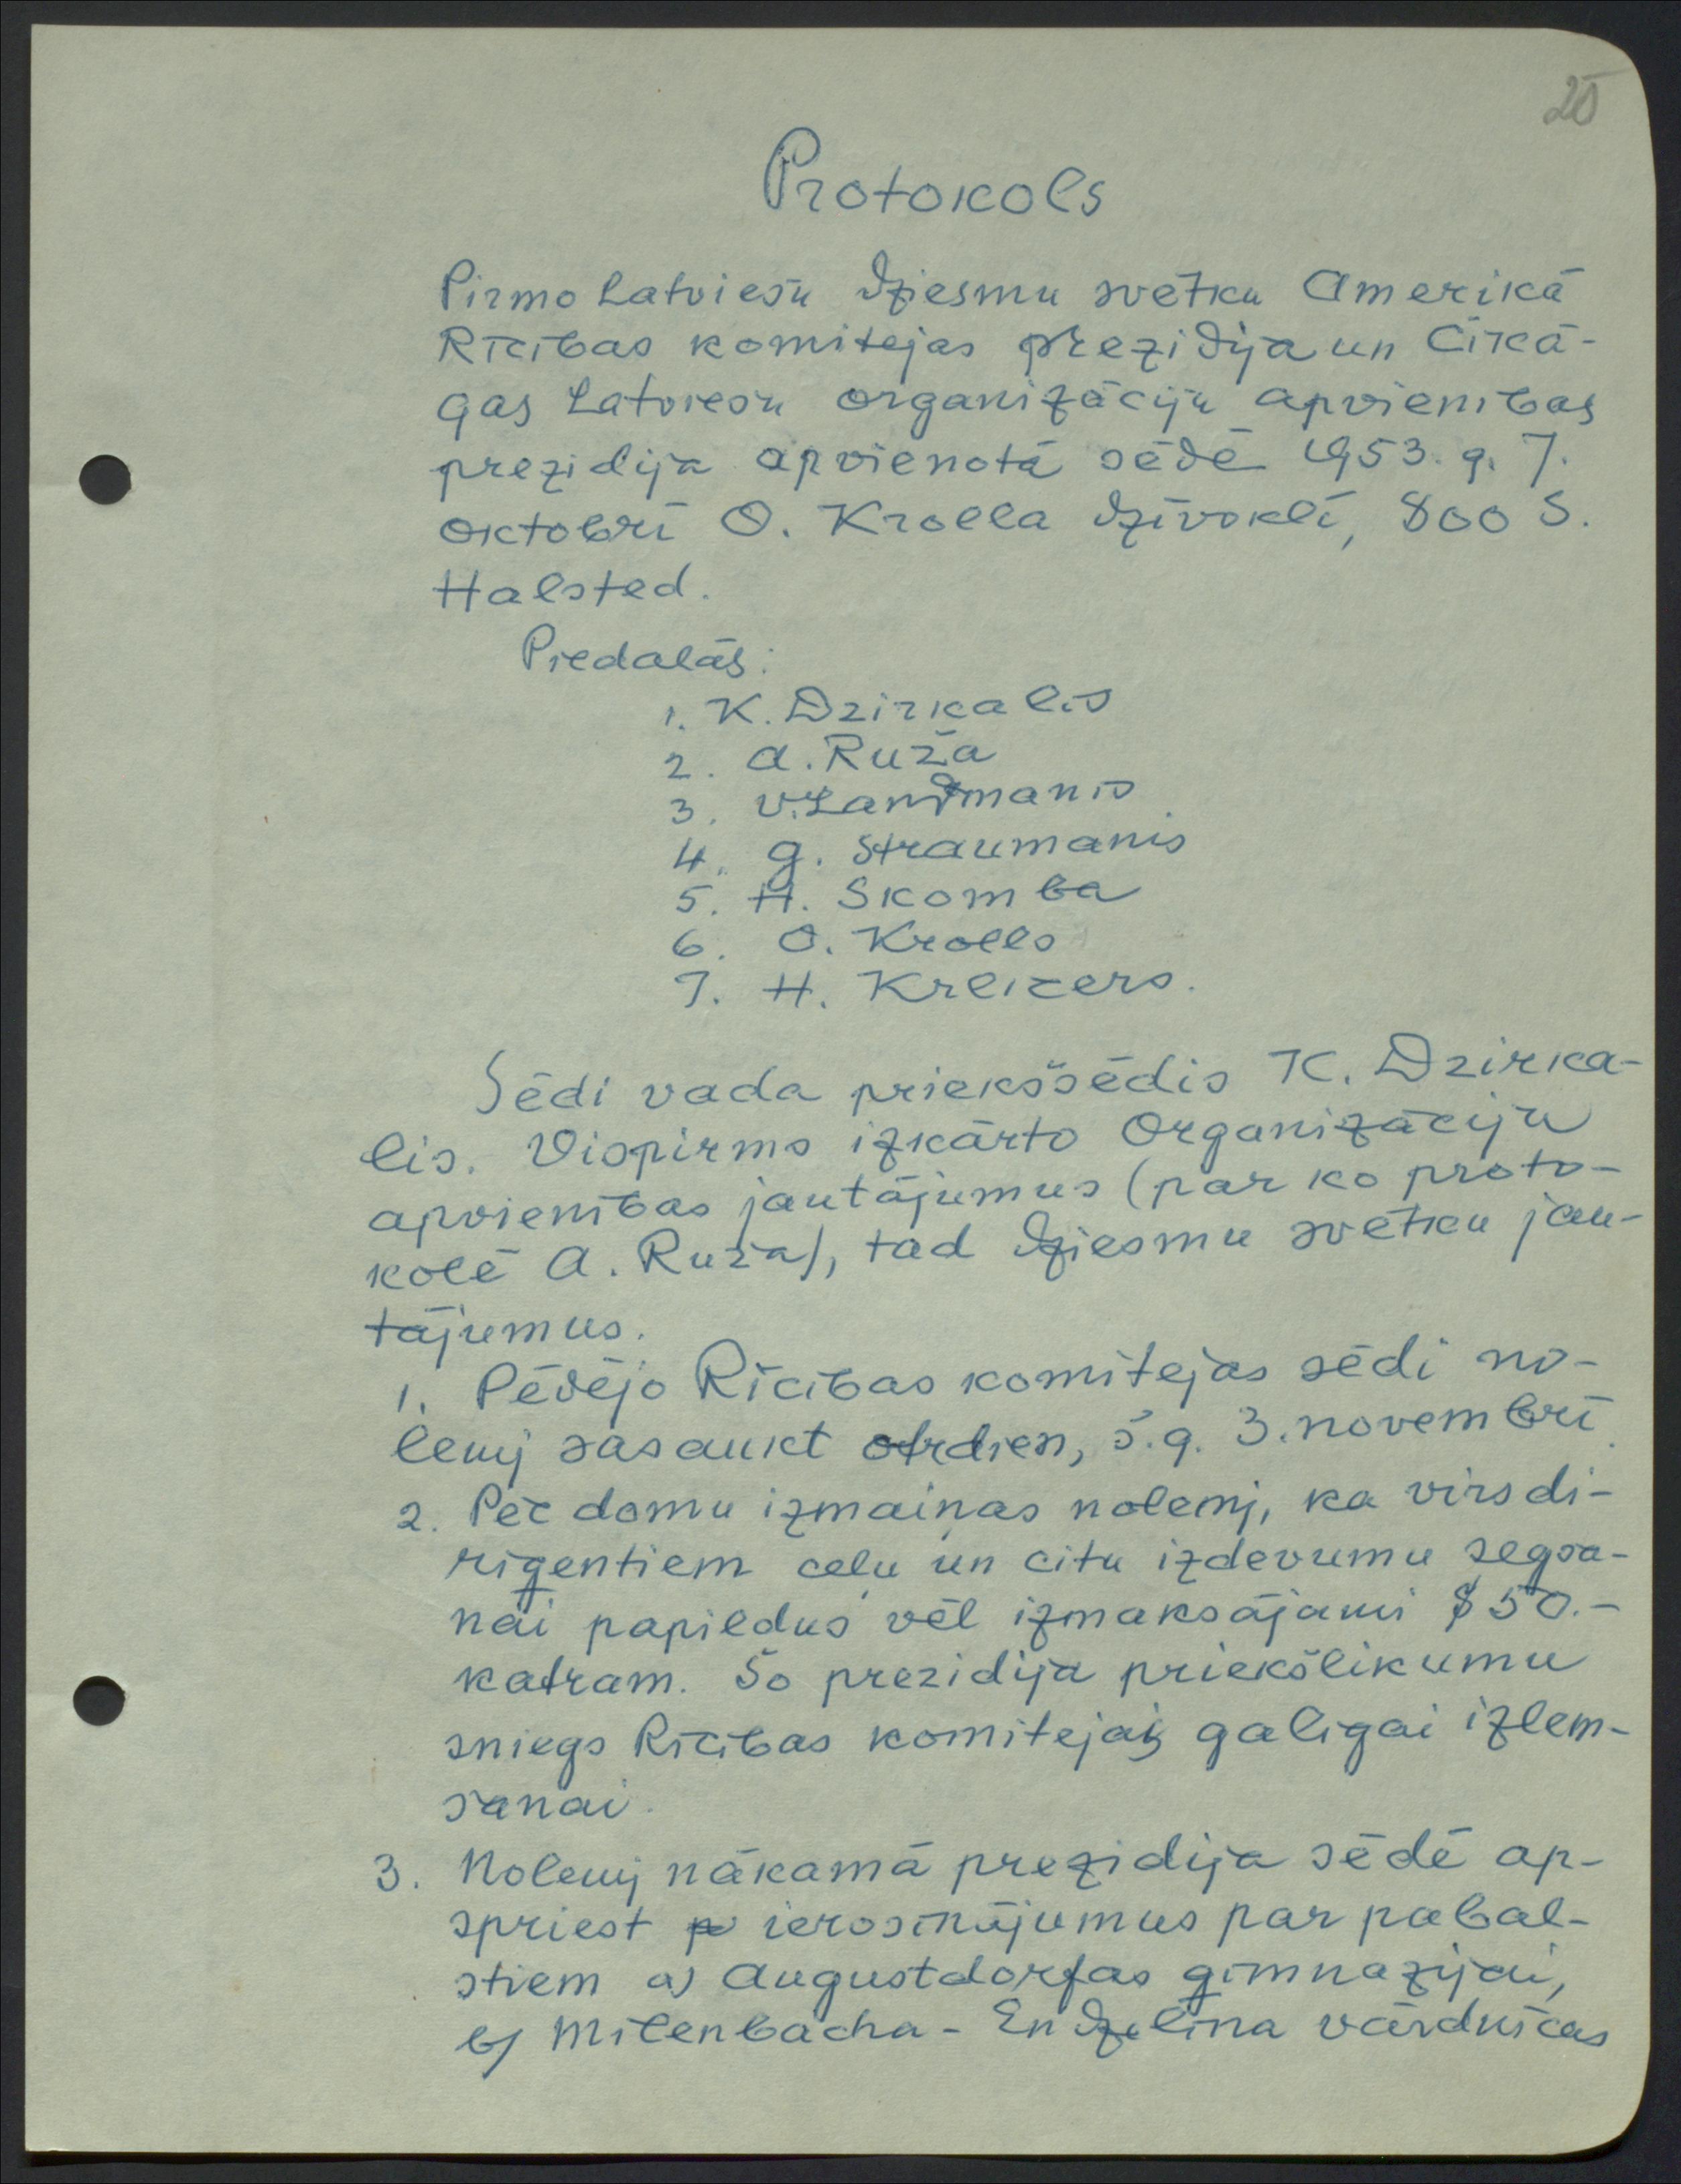 20
Protokols
Pirmo Latviešu Dziesmu svētku Amerikā
Rīcības komitejas prezidija un Čikā-
gas Latviešu organizāciju apvienības
prezidija apvienotā sēdē 1953. g. 7.
oktobrī O. Krolla dzīvoklī, 800 S.
Halsted.
Piedalās:
1. K. Dzirkalis
2. A. Ruža
3. V. Landmanis
4. G. Straumanis
5. H. Skomba
6. O. Krolls
7. H. Kreicers.
Sēdi vada priekšsēdis K. Dzirka-
lis. Vispirms izkārto Organizāciju
apvienības jautājumus (par ko proto-
kolē A. Ruža), tad Dziesmu svētku jau-
tājumus.
1. Pēdējo Rīcības komitejas sēdi no-
lemj sasaukt otrdien, š.g. 3. novembrī.
2. Pēc domu izmaiņas nolemj, ka virsdi-
riģentiem ceļu un citu izdevumu segša-
nai papildus vēl izmaksājami $50.-
katram. Šo prezidija priekšlikumu
sniegs Rīcības komitejai galīgai izlem-
šanai.
3. Nolemj nākamā prezidija sēdē ap-
spriest ierosinājumus par pabal-
stiem a) Augustdorfas ģimnazijai,
b) Mīlenbacha - Endzelīna vārdnīcas